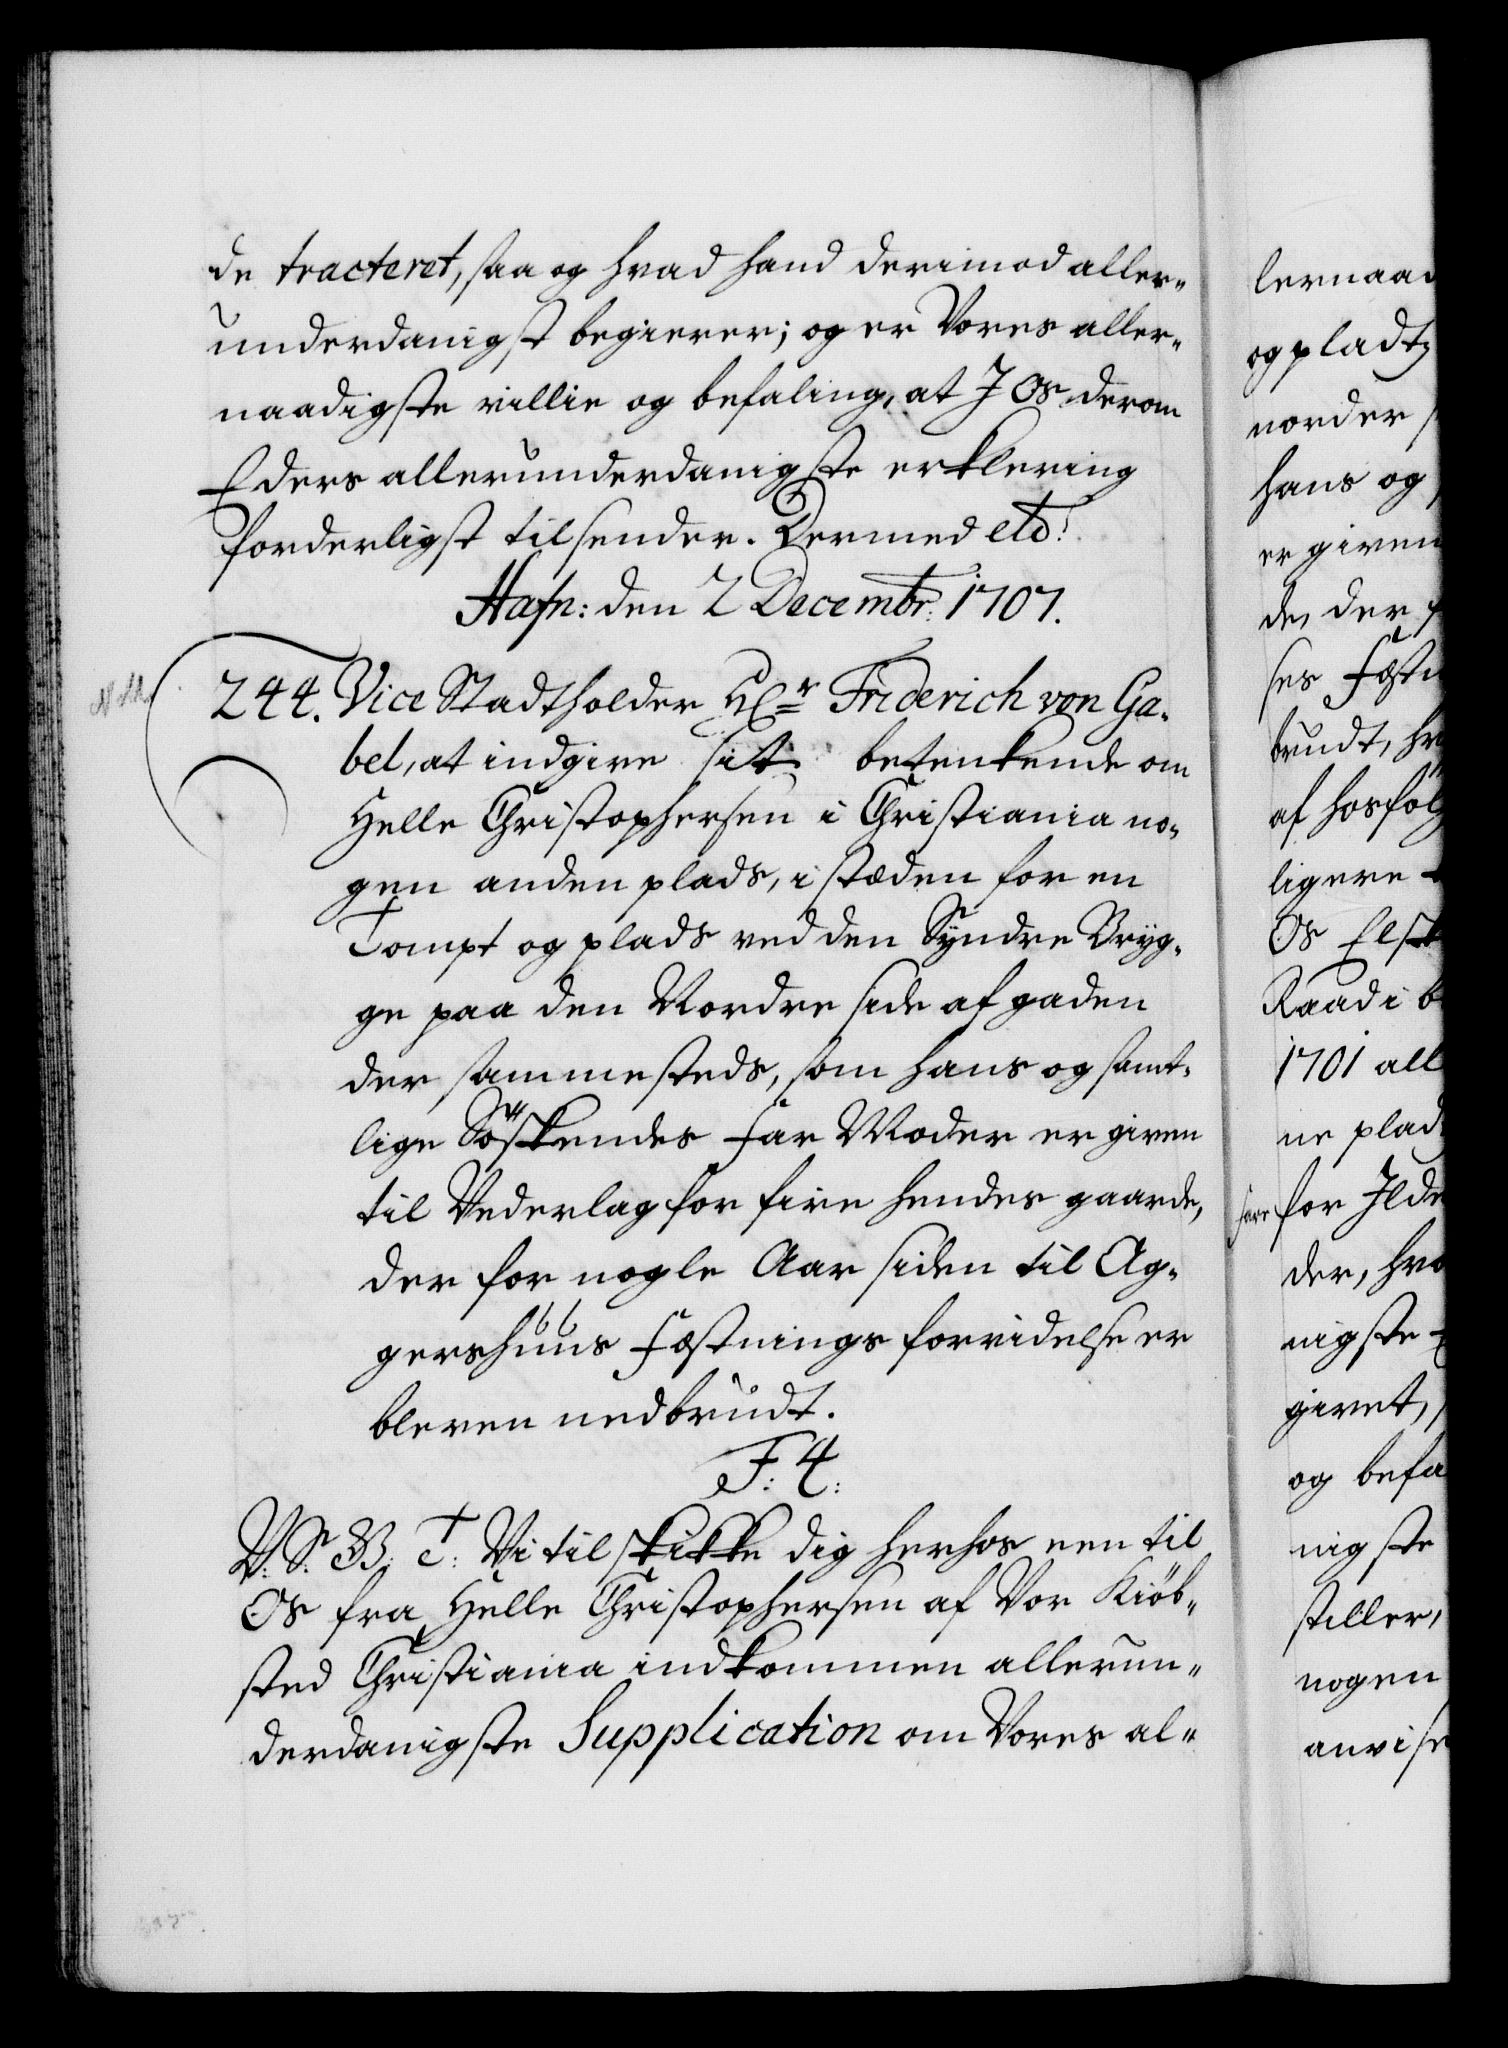 de tracteret, saa og hvad hand derimod aller-
underdanigst begierer; og er Vores aller-
naadigste villie og befaling, at I Os derom
Eders allerunderdanigste erklering
forderligst tilsender. Dermed etc:
Hafn: den 2 Decembr: 1707.
244. Vice Stadtholder Hr Friderich von Ga-
bel, at indgive sit betenkende om
Helle Christophersen i Christiania no-
gen anden plads, i stæden for en
Tompt og plads ved den Syndre Bryg-
ge paa den Nordre side af gaden
der sammesteds, som hans og samt-
lige Söskendes Far Moder er given
til Vederlag for fire hendes gaarde,
der for nogle Aar siden til Ag-
gershuus Fæstnings forvidelse er
bleven nedbrudt.
F: 4:
V: S: G: T: Vi tilskikke dig herhos een til
Os fra Helle Christophersen af Vor Kiöb-
sted Christiania indkommen allerun-
derdanigste Supplication om Vores al-
lernaad
og pladtz
norder
hans og
er given
de, der
ses Fæstn
brudt, hv
af hosföl
ligere
Os Elsk
Raad i b
1701 all
ne plad
for Ilde
der, hvo
nigste
givet,
og befa
nigste
stiller,
nogen
anvise